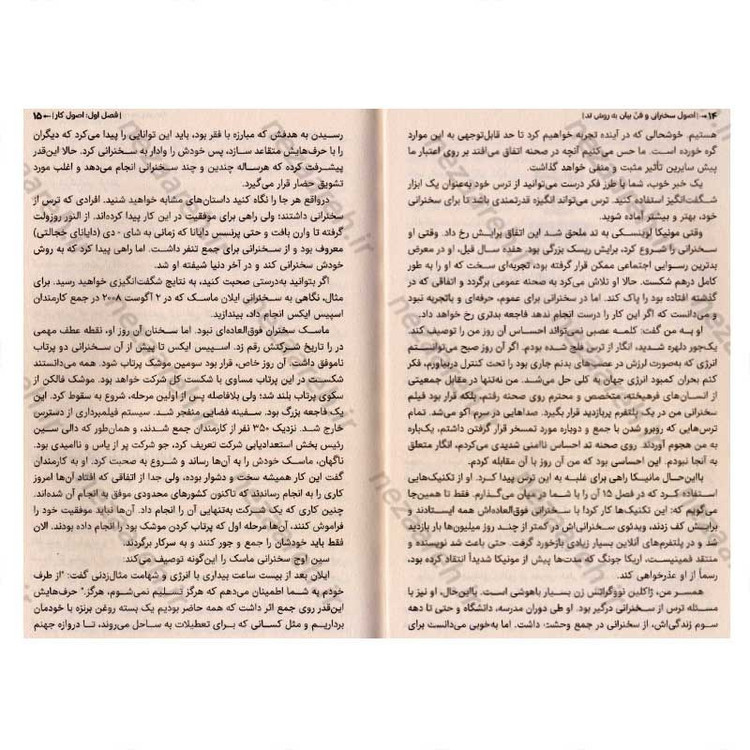 ۱۴ | اصول سخنرانی و فن بیان به روش تد |
هستیم. خوشحالی که در آینده تجربه خواهیم کرد تا حد قابل‌توجهی به این موارد
گره خورده است. ما حس می‌کنیم آنچه در صحنه اتفاق می‌افتد بر روی اعتبار ما
پیش سایرین تأثیر مثبت و منفی خواهد گذاشت.
یک خبر خوب، شما با طرز فکر درست می‌توانید از ترس خود به‌عنوان یک ابزار
شگفت‌انگیز استفاده کنید. ترس می‌تواند انگیزه قدرتمندی باشد تا برای سخنرانی
خود، بهتر و بیشتر آماده شوید.
وقتی مونیکا لوینسکی به تد ملحق شد این اتفاق برایش رخ داد. وقتی او
سخنرانی را شروع کرد، برایش ریسک بزرگی بود. هفده سال قبل، او در معرض
بدترین رسوایی اجتماعی ممکن قرار گرفته بود، تجربه‌ای سخت که او را به طور
کامل درهم شکست. حالا او تلاش می‌کرد به صحنه عمومی برگردد و اتفاقی که در
گذشته افتاده بود را پاک کند. اما در سخنرانی برای عموم، حرفه‌ای و باتجربه نبود
و می‌دانست که اگر این کار را درست انجام ندهد فاجعه بدتری رخ خواهد داد.
او به من گفت: کلمه عصبی نمی‌تواند احساس آن روز من را توصیف کند.
یک‌جور دلهره شدید، انگار از ترس فلج شده بودم. اگر آن روز صبح می‌توانستم
انرژی که به‌صورت لرزش در عصب‌های بدنم جاری بود را تحت کنترل دربیاورم، فکر
کنم بحران کمبود انرژی جهان به کلی حل می‌شد. من نه‌تنها در مقابل جمعیتی
از انسان‌های فرهیخته، متخصص و محترم روی صحنه رفتم، بلکه قرار بود فیلم
سخنرانی من در یک پلتفرم پربازدید قرار بگیرد. صداهایی در سرم اکو می‌شد. تمام
ترس‌هایی که روبرو شدن با جمع و دوباره مورد تمسخر قرار گرفتن داشتم، یک‌باره
به من هجوم آوردند. روی صحنه تد احساس ناامنی شدیدی می‌کردم، انگار متعلق
به آنجا نبودم. این احساسی بود که من آن روز با آن مقابله کردم.
بااین‌حال مانیکا راهی برای غلبه به این ترس پیدا کرد. او از تکنیک‌هایی
استفاده کرد که در فصل ۱۵ آن را با شما در میان می‌گذارم. فقط تا همین‌جا
می‌گویم که: این تکنیک‌ها کار کرد! با سخنرانی فوق‌العاده‌اش همه ایستادند و
برایش کف زدند، ویدئوی سخنرانی‌اش در کمتر از چند روز میلیون‌ها بار بازدید
شد و در پلتفرم‌های آنلاین بسیار زیادی بازخورد گرفت. حتی باعث شد نویسنده و
منتقد فمینیست، اریکا جونگ که مدت‌ها پیش از مونیکا شدیداً انتقاد کرده بود،
رسماً از او عذرخواهی کند.
همسر من، ژاکلین نووگراتس زن بسیار باهوشی است. بااین‌حال، او نیز با
مسئله ترس از سخنرانی درگیر بود. او طی دوران مدرسه، دانشگاه و حتی تا دهه
سوم زندگی‌اش، از سخنرانی در جمع وحشت داشت. اما به‌خوبی می‌دانست برای
| فصل اول: اصول کار | ۱۵
رسیدن به هدفش که مبارزه با فقر بود، باید این توانایی را پیدا می‌کرد که دیگران
را با حرف‌هایش متقاعد سازد، پس خودش را وادار به سخنرانی کرد. حالا این‌قدر
پیشرفت کرده که هرساله چندین و چند سخنرانی انجام می‌دهد و اغلب مورد
تشویق حضار قرار می‌گیرد.
درواقع هر جا را نگاه کنید داستان‌های مشابه خواهید شنید. افرادی که ترس از
سخنرانی داشتند؛ ولی راهی برای موفقیت در این کار پیدا کرده‌اند. از النور روزولت
گرفته تا وارن بافت و حتی پرنسس دایانا که زمانی به شای - دی (دایانای خجالتی)
معروف بود و از سخنرانی برای جمع تنفر داشت. اما راهی پیدا کرد که به روش
خودش سخنرانی کند و در آخر دنیا شیفته او شد.
اگر بتوانید به‌درستی صحبت کنید، به نتایج شگفت‌انگیزی خواهید رسید. برای
مثال، نگاهی به سخنرانی ایلان ماسک که در ۲ آگوست ۲۰۰۸ در جمع کارمندان
اسپیس ایکس انجام داد، بیندازید.
ماسک سخنران فوق‌العاده‌ای نبود. اما سخنان آن روز او، نقطه عطف مهمی
در را تاریخ شرکتش رقم زد. اسپیس ایکس تا پیش از آن سخنرانی دو پرتاب
ناموفق داشت. آن روز خاص، قرار بود سومین موشک پرتاب شود. همه می‌دانستند
شکست در این پرتاب مساوی با شکست کل شرکت خواهد بود. موشک فالکن از
سکوی پرتاب بلند شد؛ ولی بلافاصله پس از اولین مرحله، شروع به سقوط کرد. این
یک فاجعه بزرگ بود. سفینه فضایی منفجر شد. سیستم فیلم‌برداری از دسترس
خارج شد. نزدیک ۳۵۰ نفر از کارمندان جمع شدند، و همان‌طور که دالی سین
رئیس بخش استعدادیابی شرکت تعریف کرد، جو شرکت پر از یاس و ناامیدی بود.
ناگهان، ماسک خودش را به آن‌ها رساند و شروع به صحبت کرد. او به کارمندان
گفت این کار همیشه سخت و دشوار بوده، ولی جدا از اتفاقی که افتاد آن‌ها امروز
کاری را به انجام رساندند که تاکنون کشورهای محدودی موفق به انجام آن شده‌اند.
چنین کاری که یک شرکت به‌تنهایی آن را انجام داد. آن‌ها نباید موفقیت خود را
فراموش کنند، آن‌ها مرحله اول که پرتاب کردن موشک بود را انجام داده بودند. الان
فقط باید خودشان را جمع و جور کنند و به سرکار برگردند.
سین اوج سخنرانی ماسک را این‌گونه توصیف می‌کند:
ایلان بعد از بیست ساعت بیداری با انرژی و شهامت مثال‌زدنی گفت: "از طرف
خودم به شما اطمینان می‌دهم که هرگز تسلیم نمی‌شوم، هرگز." حرف‌هایش
این‌قدر روی جمع اثر داشت که همه حاضر بودیم یک بسته روغن برنزه با خودمان
برداریم و مثل کسانی که برای تعطیلات به ساحل می‌روند، تا دروازه جهنم
nezareh.ir